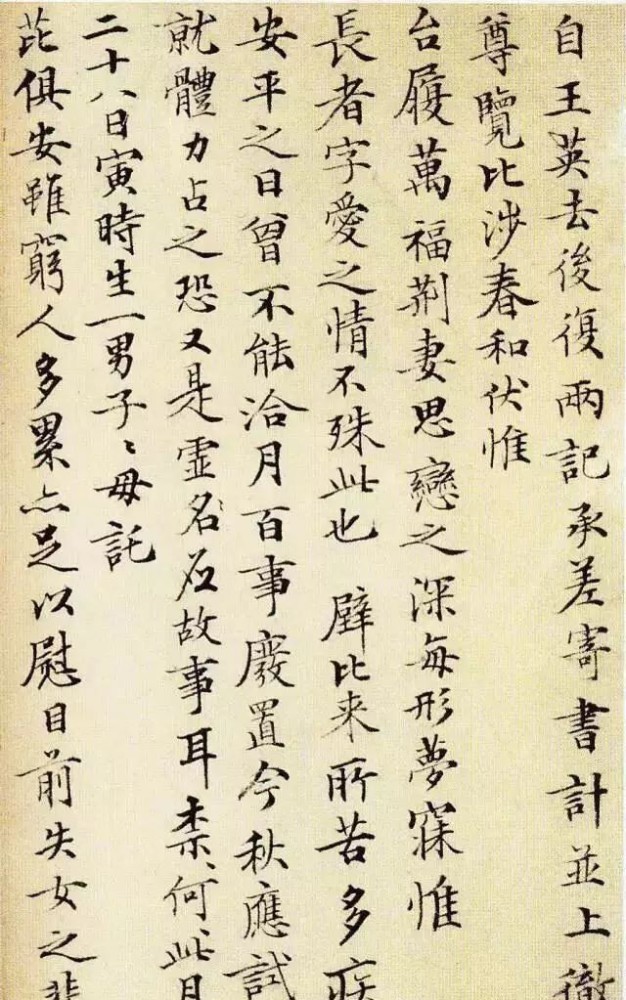 自王英去後復兩記承差寄書計並上徹
尊覽比涉春和伏惟
台履萬福荆妻思戀之深每形夢寐惟
長者字愛之情不殊此也 辟比来所苦多疾
安平之日曾不能洽月百事廢置今秋應試
就體力占之恐又是虛名名故事耳柰何柰何此月
二十八日寅時生一男子子母託
芘俱安雖窮人多累亦足以慰目前失女之悲